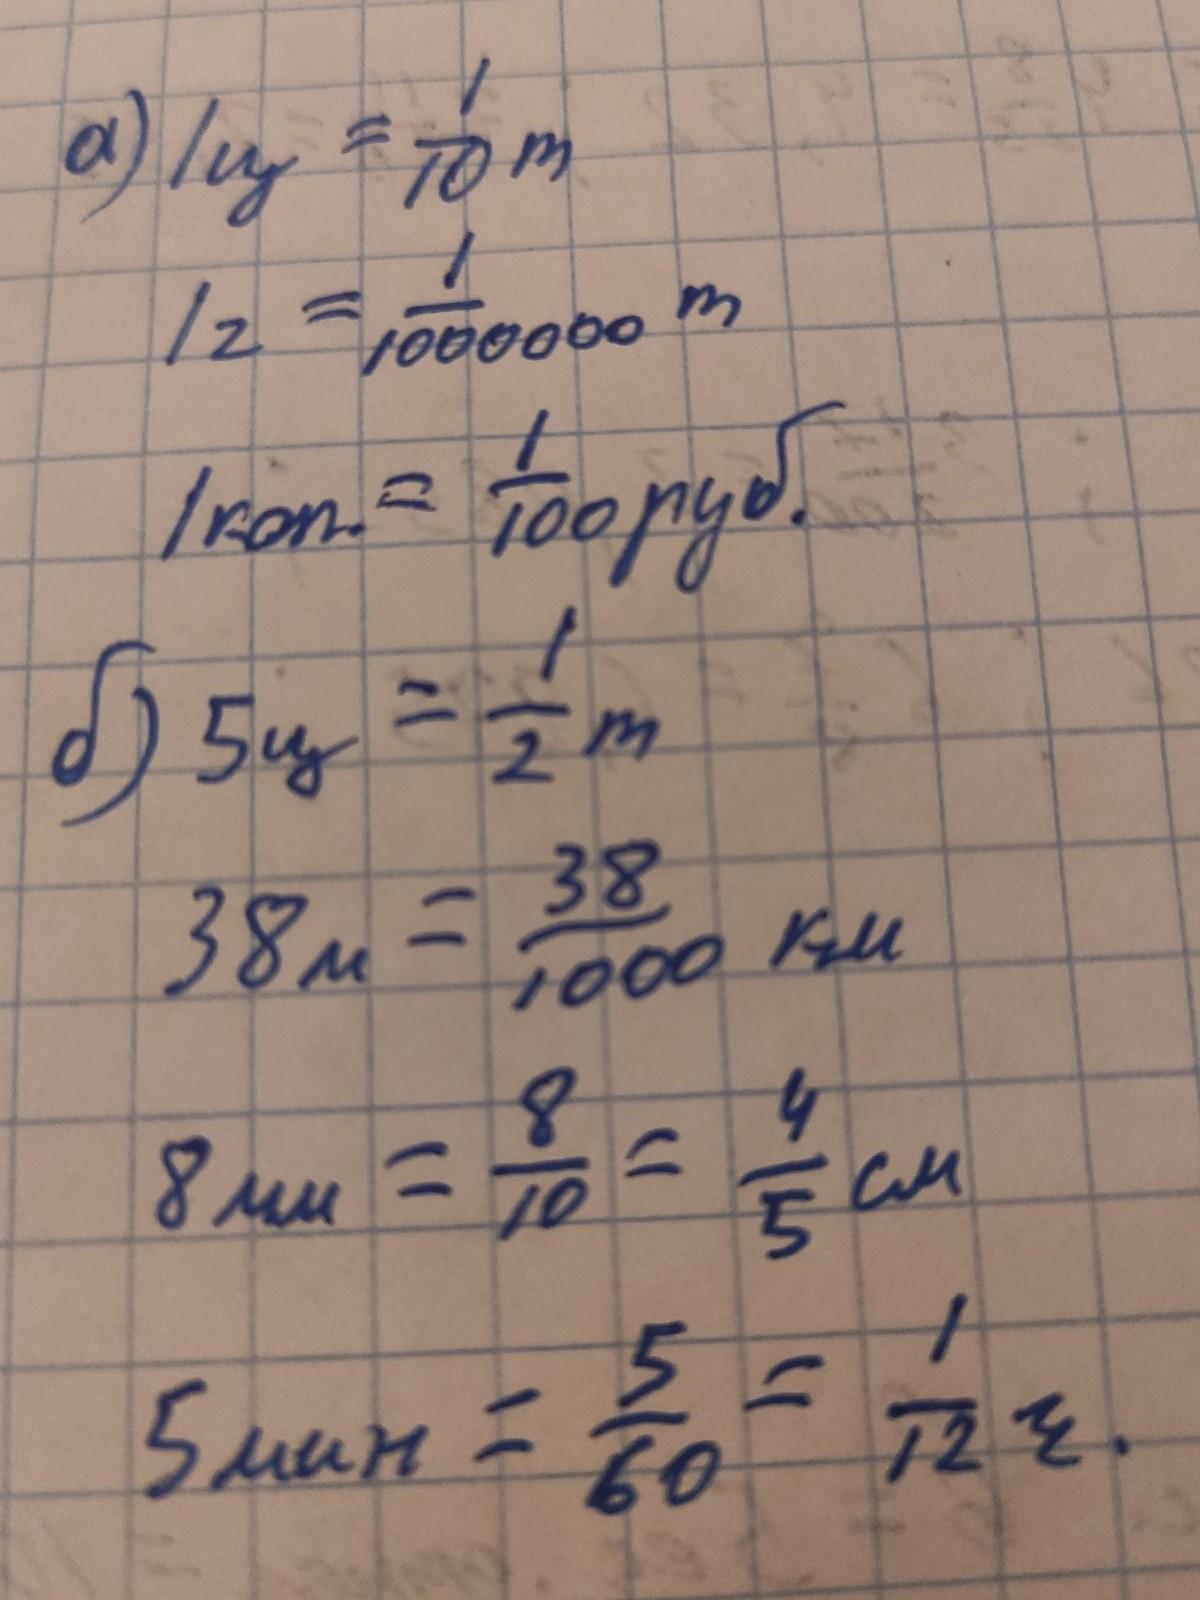 а) 1ц = 1/10 т
1г = 1/1000000 т
1коп. = 1/100 руб.
б) 5ц = 1/2 т
38м = 38/1000 км
8мм = 8/10 = 4/5 см
5мин = 5/60 = 1/12 ч.